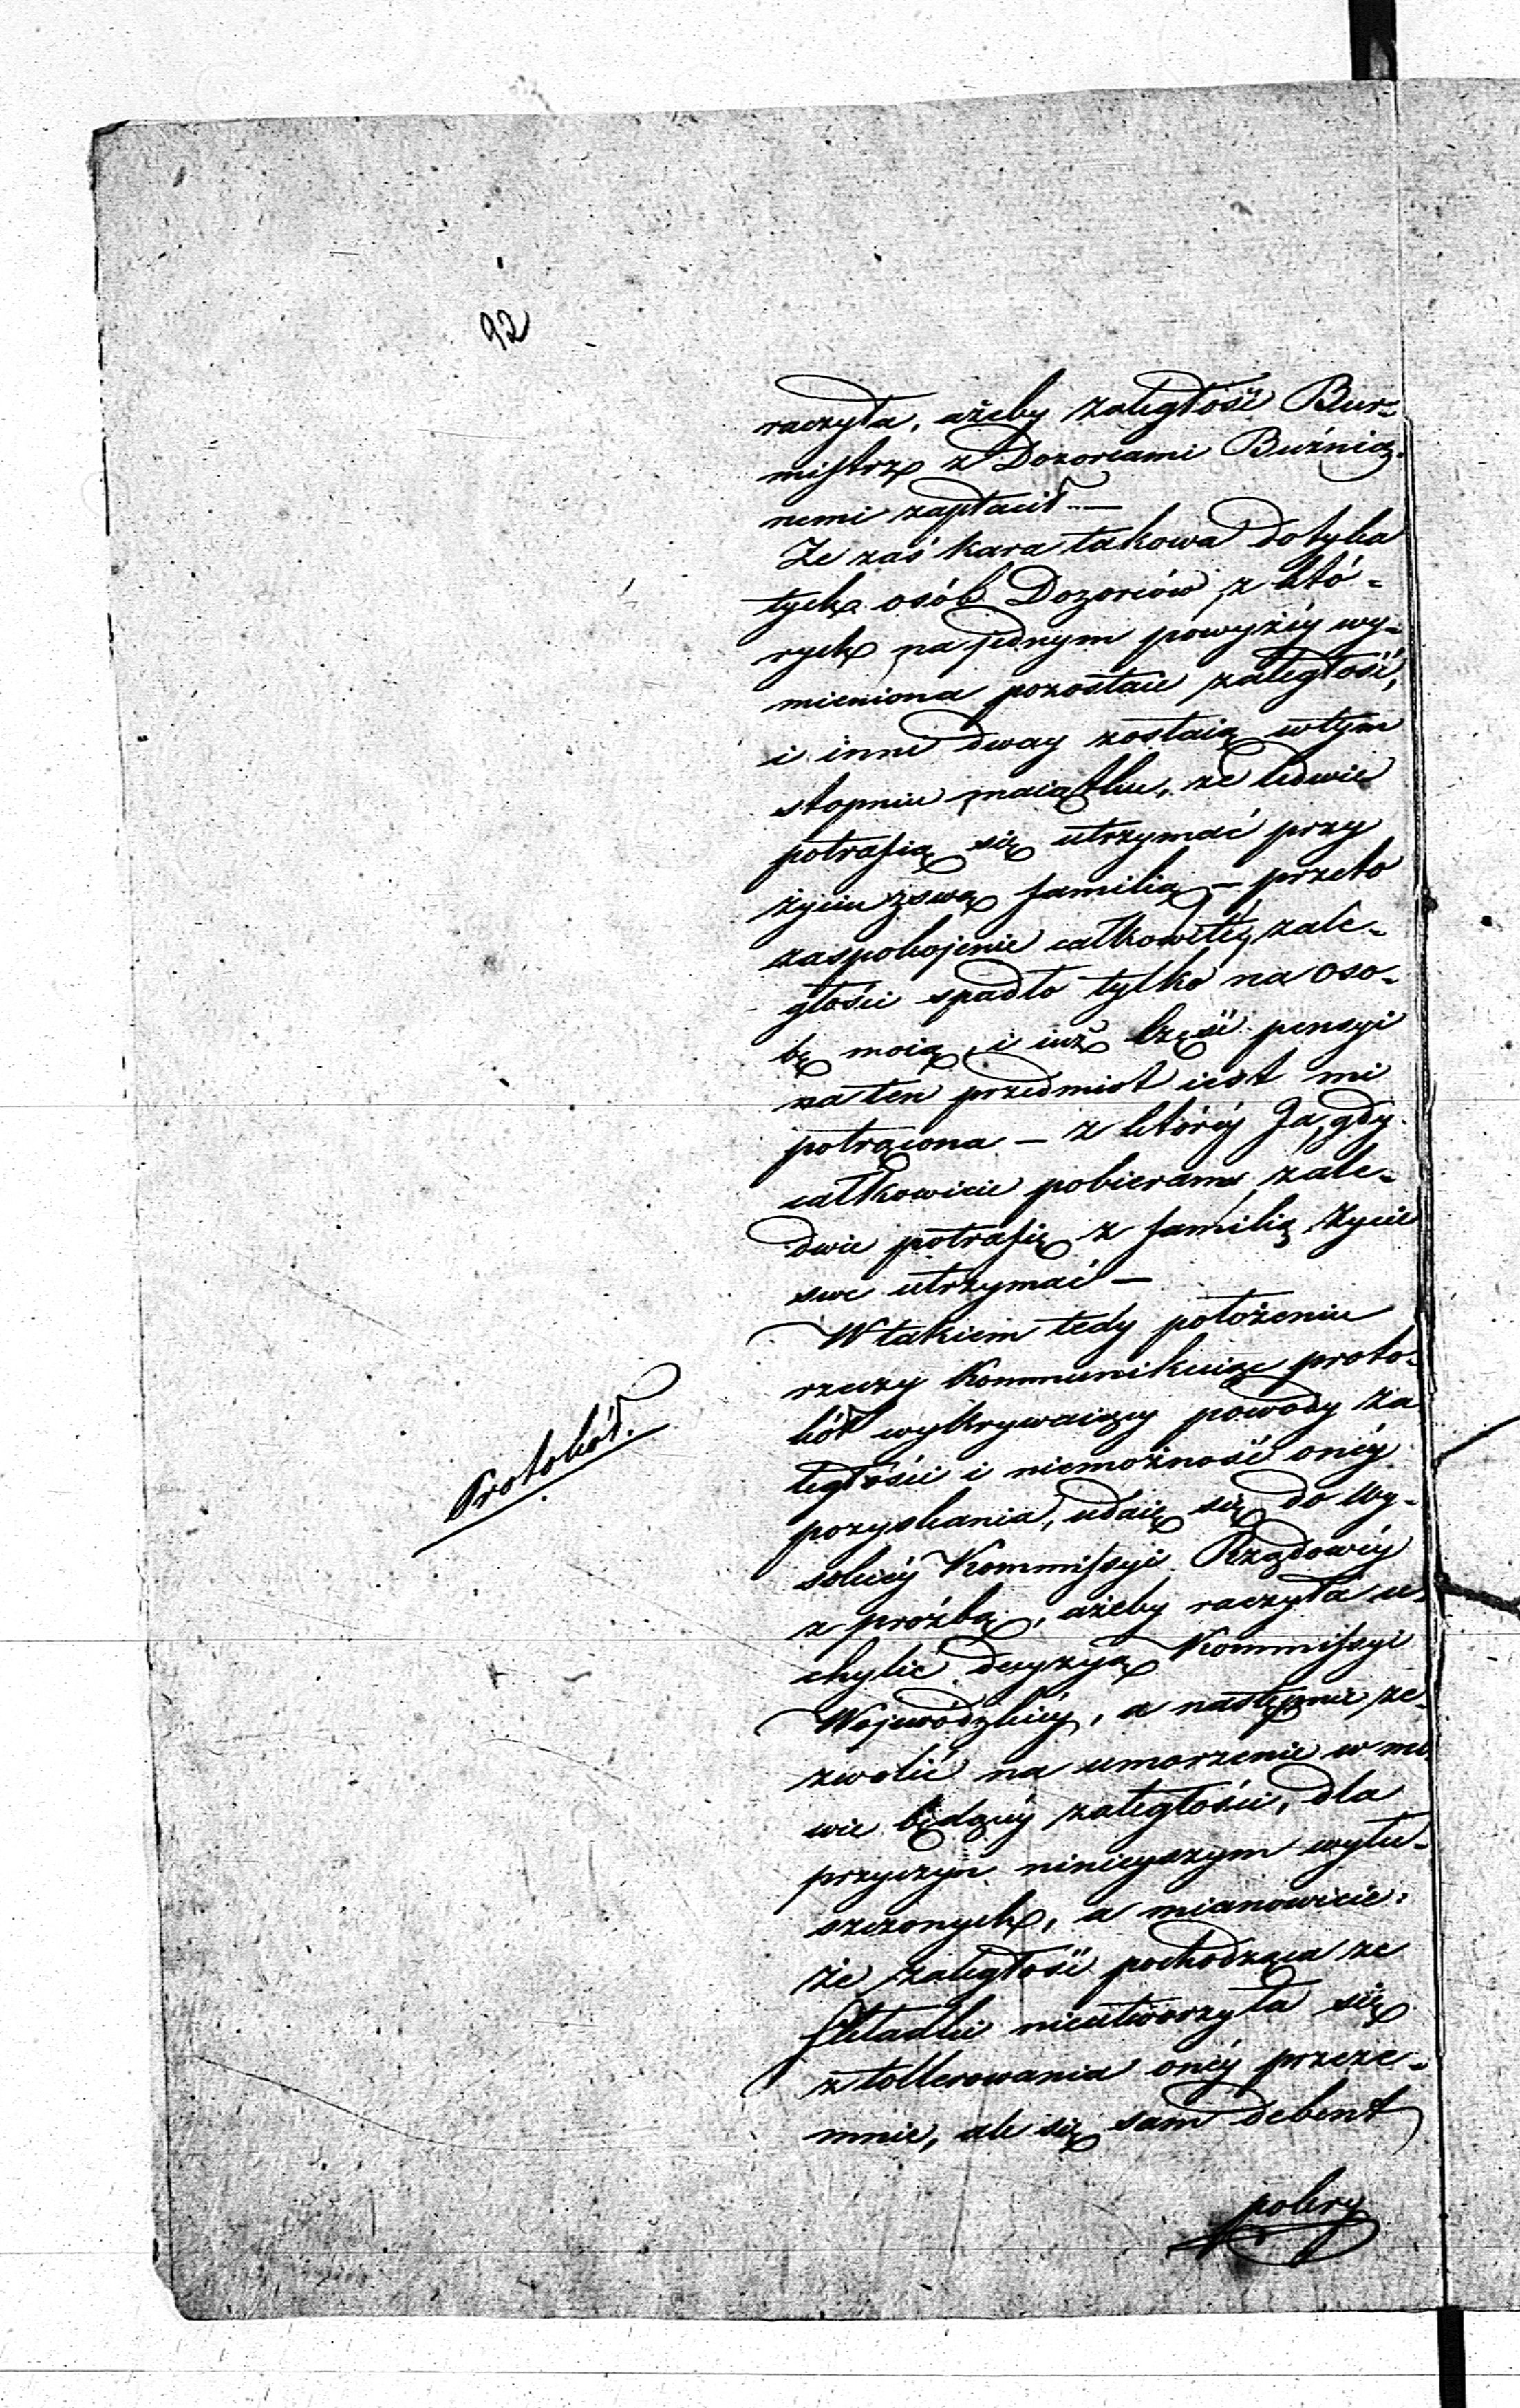 92
raczyła, ażeby zaległość Bur-
mistrz z Dozorcami Bużnicz-
nemi zapłacił. —
Ze zaś kara takowa dotyka
tych osób Dozorców, z któ-
rych na jednym powyżéy wy-
mieniona pozostaie zaległość,
i inni dway zostaią w tym
stopniu maiątku, że ledwie
potrafią się utrzymać przy
życiu z swą familią — przeto
zaspokojenie całkowitéy zale-
głości spadło tylko na oso-
bę moią, i iuż część pensyi
na ten przedmiot iest mi
potrącona — z któréy Ja, gdy
całkowicie pobieram, zale-
dwie potrafię z familią życie
swe utrzymać —
W takiem tedy położeniu
rzeczy kommunikuiąc proto-
kół wykrywaiący powody za
ległości i niemożność onéy
pozyskania, udaię się do Wy-
sokiéy Kommissyi Rządowéy
z prożbą, ażeby raczyła u-
chylić decyzyą Kommissyi
Wojewódzkiéy, a następnie ze-
zwolić na umorzenie w mo-
wie będącéy zaległości, dla
przyczyn ninieyszym wyłu-
szczonych, a mianowicie:
że zaległość pochodząca ze
składki nieutworzyła się
z tollerowania onéy przeze-
mnie, ale się sam debent
pokry
Protokół.